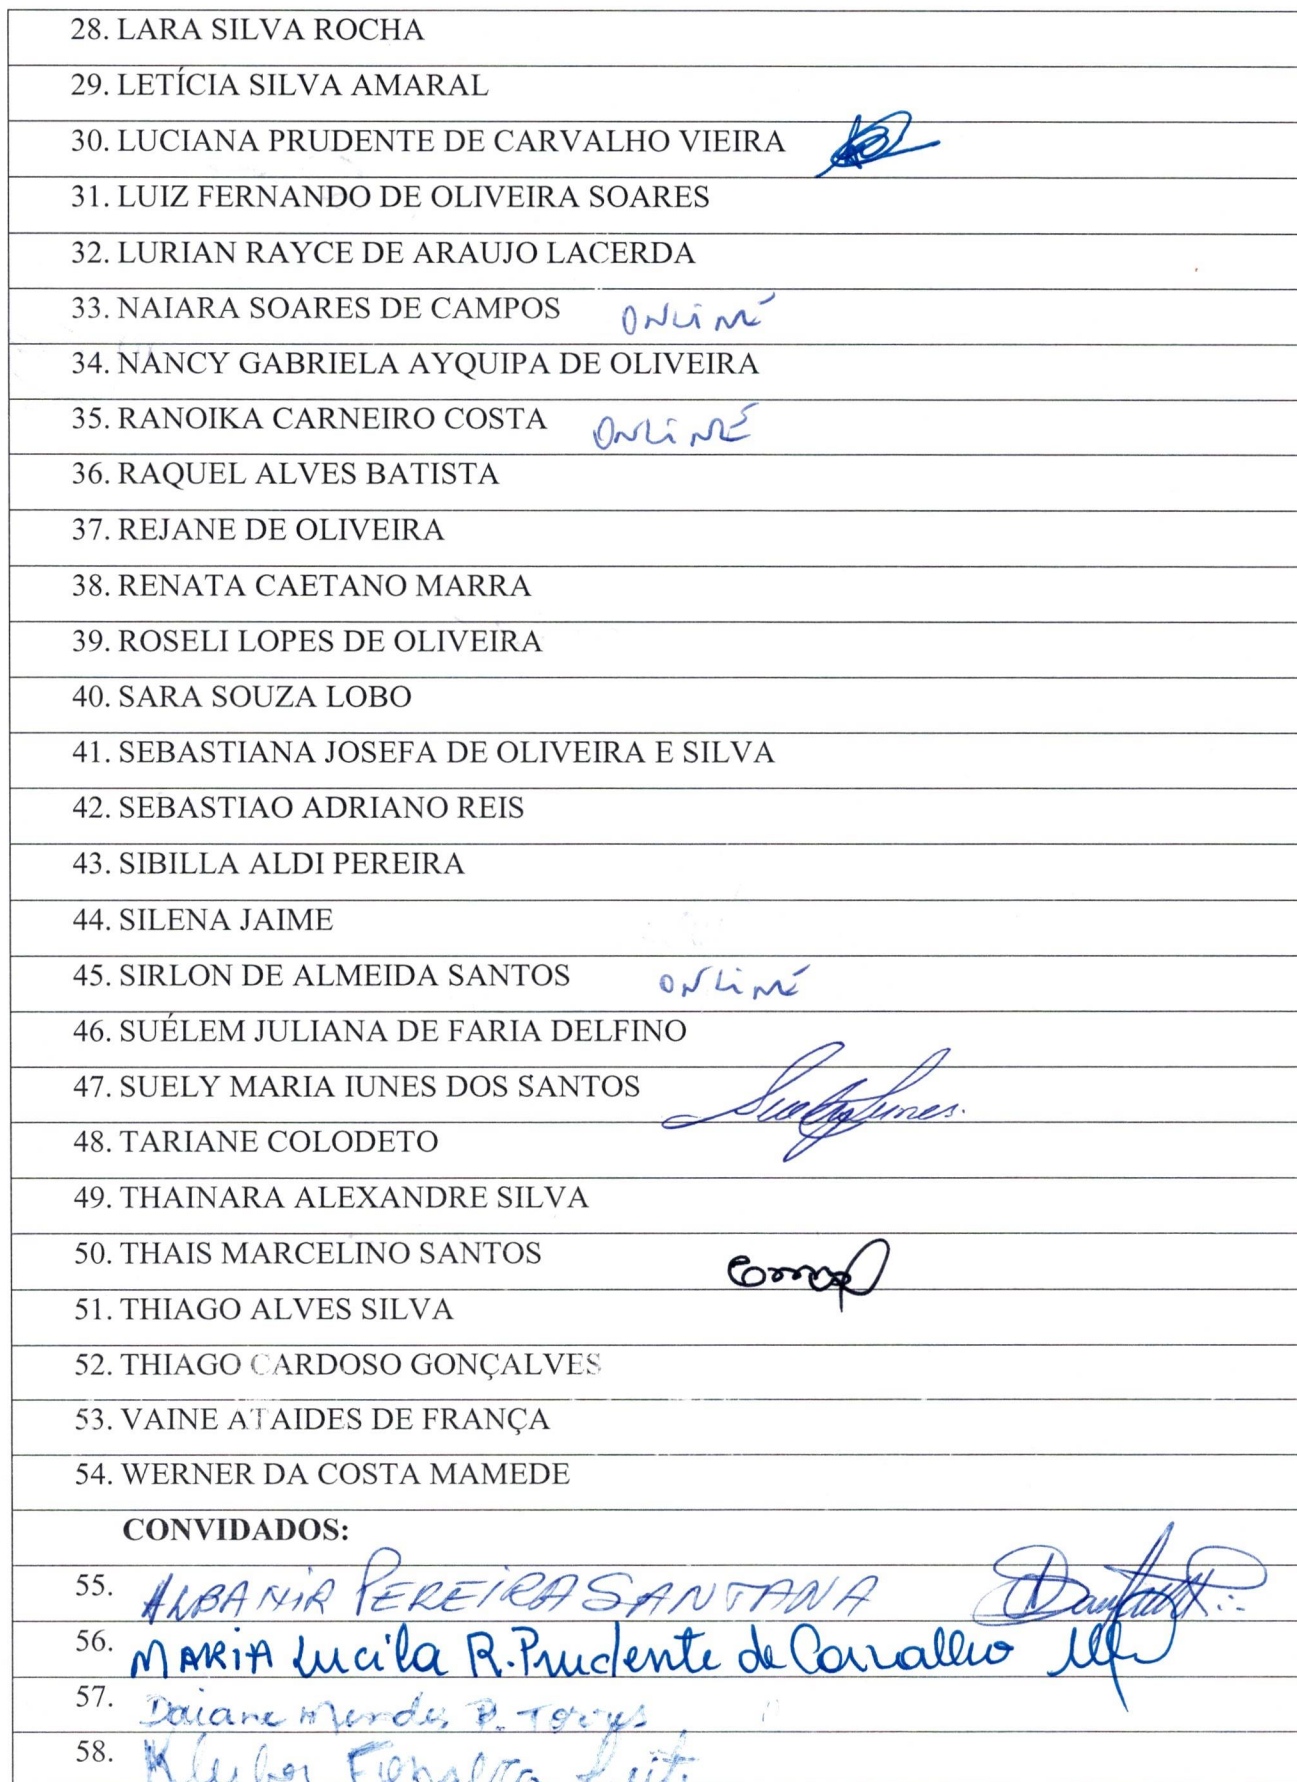 28. LARA SILVA ROCHA
29. LETÍCIA SILVA AMARAL
30. LUCIANA PRUDENTE DE CARVALHO VIEIRA
31. LUIZ FERNANDO DE OLIVEIRA SOARES
32. LURIAN RAYCE DE ARAUJO LACERDA
33. NAIARA SOARES DE CAMPOS ONLINE
34. NANCY GABRIELA AYQUIPA DE OLIVEIRA
35. RANOIKA CARNEIRO COSTA ONLINE
36. RAQUEL ALVES BATISTA
37. REJANE DE OLIVEIRA
38. RENATA CAETANO MARRA
39. ROSELI LOPES DE OLIVEIRA
40. SARA SOUZA LOBO
41. SEBASTIANA JOSEFA DE OLIVEIRA E SILVA
42. SEBASTIAO ADRIANO REIS
43. SIBILLA ALDI PEREIRA
44. SILENA JAIME
45. SIRLON DE ALMEIDA SANTOS ONLINE
46. SUÉLEM JULIANA DE FARIA DELFINO
47. SUELY MARIA IUNES DOS SANTOS Suely Iunes.
48. TARIANE COLODETO
49. THAINARA ALEXANDRE SILVA
50. THAIS MARCELINO SANTOS
51. THIAGO ALVES SILVA
52. THIAGO CARDOSO GONÇALVES
53. VAINE ATAIDES DE FRANÇA
54. WERNER DA COSTA MAMEDE
CONVIDADOS:
55. ALBANIR PEREIRA SANTANA
56. MARIA Lucila R. Prudente de Carvalho
57. Daiane Mendes B. Torres
58. Kleiber Fonseca Leite